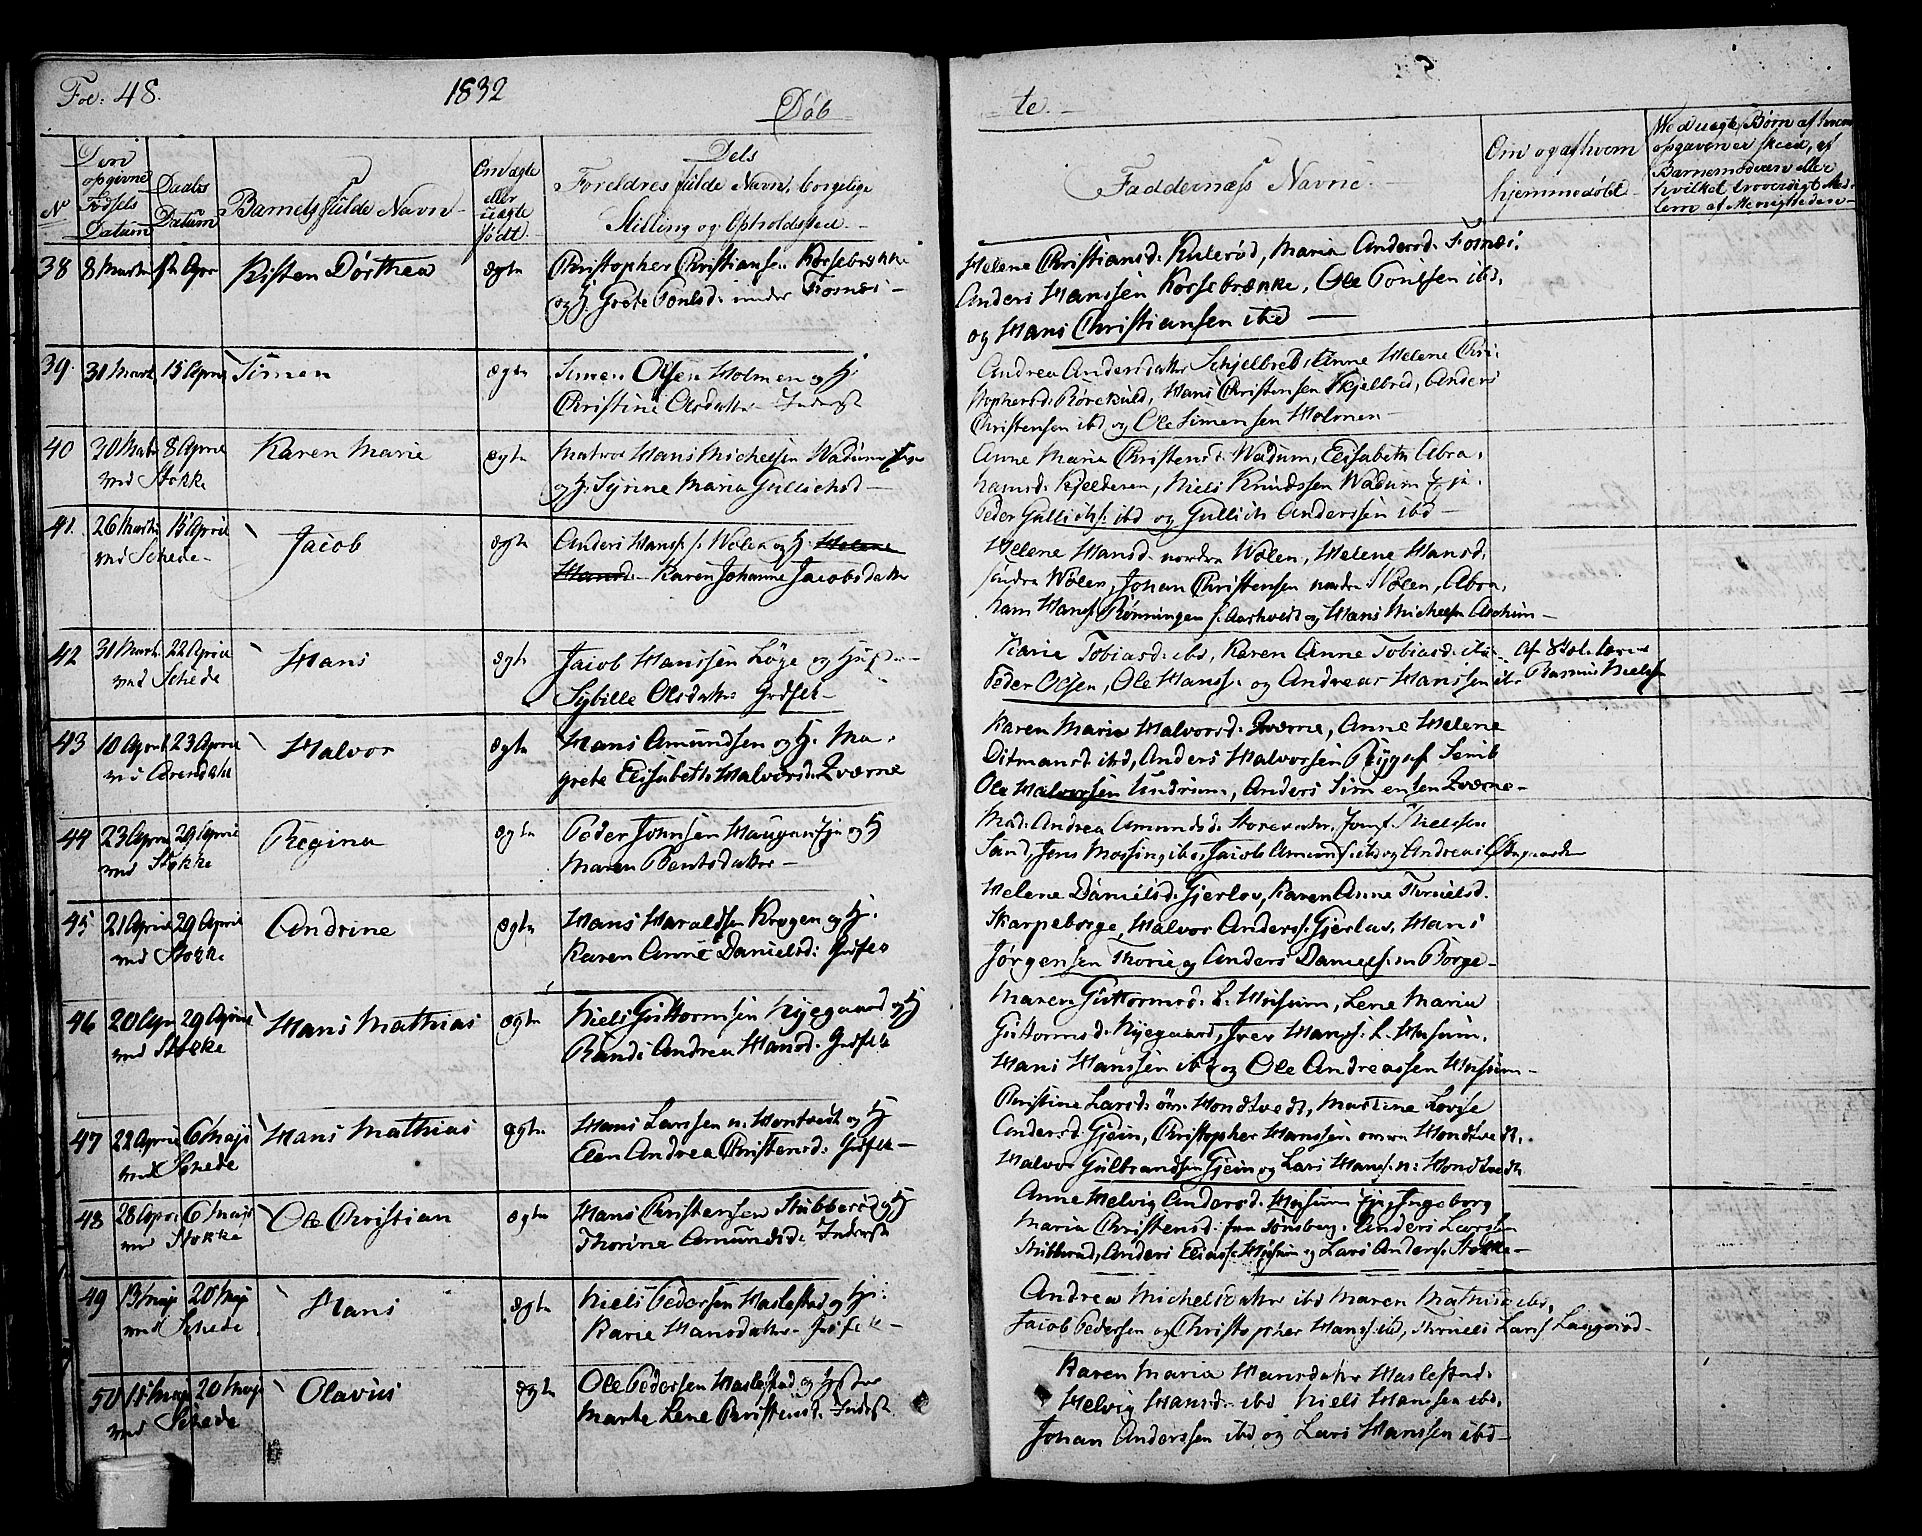 Fol: 48.
1832
Døb
te.
No
Den opgivne Fødsels Datum
Daabs Datum
Barnets fulde Navn
Om ægte eller uægte født.
Dels
Foreldres fulde Navn, borgelige
Stilling og Opholdssted
Faddernes Navne
Om og af hvem
hjemmedøbt
Ved uægte Børn af hvem
opgaven er skeed, af
Barnemoderen eller
hvilket troværdigt Med-
lem af Menigheden
38 8 Marts 1ste Apr Kisten Dorthea ægte Christopher Christians. Korsebrække
og H. Grete Tonlsd: under Fosnæs
Helene Christiansd: Rulerød, Maria Andersd: Fosnæs.
Anders Hanssen Korsebrække, Ole Tonlsen ibd,
og Hans Christiansen ibd
39. 31 Mart 15 April Simen ægte Simen Olsen Holmen og H.
Christine Olsdatter Inderst
Andrea Andersdatter Schjelbred, Anne Helene Chri-
stophersd: Hans Christensen Skjelbred, Anders
Christensen ibd og Ole Simensen Holmen
40 30 Mart 8 April Karen Marie ægte Matros Hans Michelsen Wadum
ved Stokke
og H. Syrine Maria Gullichsd
Anne Maria Christensd: Wadum, Elisabeth Abra-
hamsd: Niels Knudssen Wadum Eje
Peder Gullichs: ibd og Gullich Anderssen ibd
41. 26 Marts 15 April Jacob ægte Anders Hans: s: Wølen og H. Helene
ved Schede
Hansd: Karen Johanne Jacobsdatter
Helene Hansd: nordre Wølen, Helene Hansd:
søndre Wølen, Johan Christensen nordre Wølen, Abra-
ham Hans: Rønningen s: Aarholt og Hans Michelsen
42 31 Marts 22 April Hans ægte Jacob Hanssen Løge og Hustru
ved Schede
Sybille Olsdatter Gdfolk
Karie Tobiasd: ibd, Karen Anne Tobiasd: ibd
Peder Olsen, Ole Hans: og Andreas Hanssen ib
Af Skol. lærer
Rasmus Nielsen
43 10 April 23 April Halvor ægte Hans Amundsen og H. Ma-
ved Arendahl
grete Elisabeth Halvorsd: Zværne
Karen Maria Halvorsd: Zværne, Anne Helene
Ditmansd ibd, Anders Halvorssen Bryggef Semb
Ole Halvorssen Undrum, Anders Simensen Zværne
44 23 April 29 April Regina ægte Peder Johnsen Haugan Eje og H
ved Stokke
Maren Bentsdatter
Mad: Andrea Amundsd: Jomf: Nielsen
Sand, Jens Mossing ibd, Jacob Amunds: ibd og Andreas
45 21 April 29 April Andrine ægte Hans Haraldsen Krogen og H.
ved Stokke
Karen Anne Danielsd: Gdfolk
Helene Danielsd: Gjerlov, Karen Anne Thronielsd:
Skarpeborge, Halvor Anders: Gjerlav, Hans
Jørgensen Thorie og Anders Danielsen Borge
46 20 Apr 29 April Hans Mathias ægte Niels Guttormsen Nyegaard og H
ved Stokke
Randi Andrea Hansd: Gdfolk
Maren Guttormsd: L. Husum, Lene Maria
Guttormsd: Nyegaard, Iver Hans: L. Husum,
Hans Hanssen ibd og Ole Andreassen Husum
47 22 April 6 Maji Hans Mathias ægte Hans Larssen n: Hontvedt og H
ved Schede
Elen Andrea Christensd: Gdfolk
Christine Larsd: Hondtvedt, Martine Lovise
Andersd: Gjein, Christopher Hanssen Hondtvedt,
Halvor Gulbrandsen Gjein og Lars Hans: n: Hondtvedt
48 28 April 6 Maji Ole Christian ægte Hans Christensen Stubberød og H
ved Stokke
Thorine Amundsd: Inderst
Anne Helvig Andersd: Husum Eje, Ingeborg
Maria Christensd: fra Tønsberg, Anders Larsen
Stubberød, Anders Elias: Husum og Lars Anders: Stokke
49 13 Maji 20 Maji Hans ægte Niels Pedersen Haslestad og H.
ved Schede
Karie Hansdatter Gdfolk
Andrea Michelsdatter ibd Maren Mathisd ibd,
Jacob Pedersen og Christopher Hans: ibd, Lars
50 Maji 20 Maji Olavus ægte Ole Pedersen Haslestad og Hustrue
ved Schede
Marte Lene Christensd: Inderst
Karen Maria Hansdatter Haslestad,
Helvig Hansd: ibd Niels Hanssen ibd,
Johan Anderssen ibd og Lars Hanssen ibd